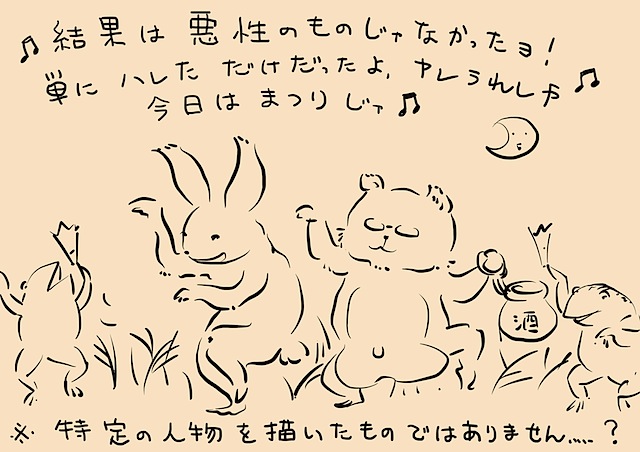 ♫結果は悪性のものじゃなかったヨ!
単にハレただけだったよ、ヤレうれしや♫
今日はまつりじゃ♫
酒
※特定の人物を描いたものではありません……?